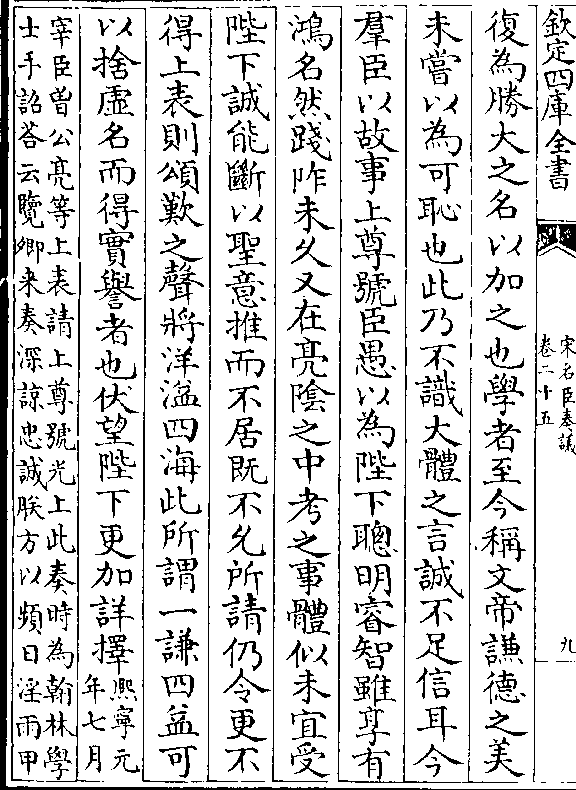 欽定四庫全書
宋名臣奏議
卷二十五
九
復為勝大之名以加之也學者至今稱文帝謙德之美
未嘗以為可恥也此乃不識大體之言誠不足信耳今
羣臣以故事上尊號臣愚以為陛下聰明睿智雖享有
鴻名然踐阼未久又在亮陰之中考之事體似未宜受
陛下誠能斷以聖意推而不居既不允所請仍令更不
得上表則頌歎之聲將洋溢四海此所謂一謙四益可
以捨虛名而得實譽者也伏望陛下更加詳擇熙寧元
年七月
宰臣曾公亮等上表請上尊號光上此奏時為翰林學
士手詔答云覽卿来奏深諒忠誠朕方以頻日淫雨甲